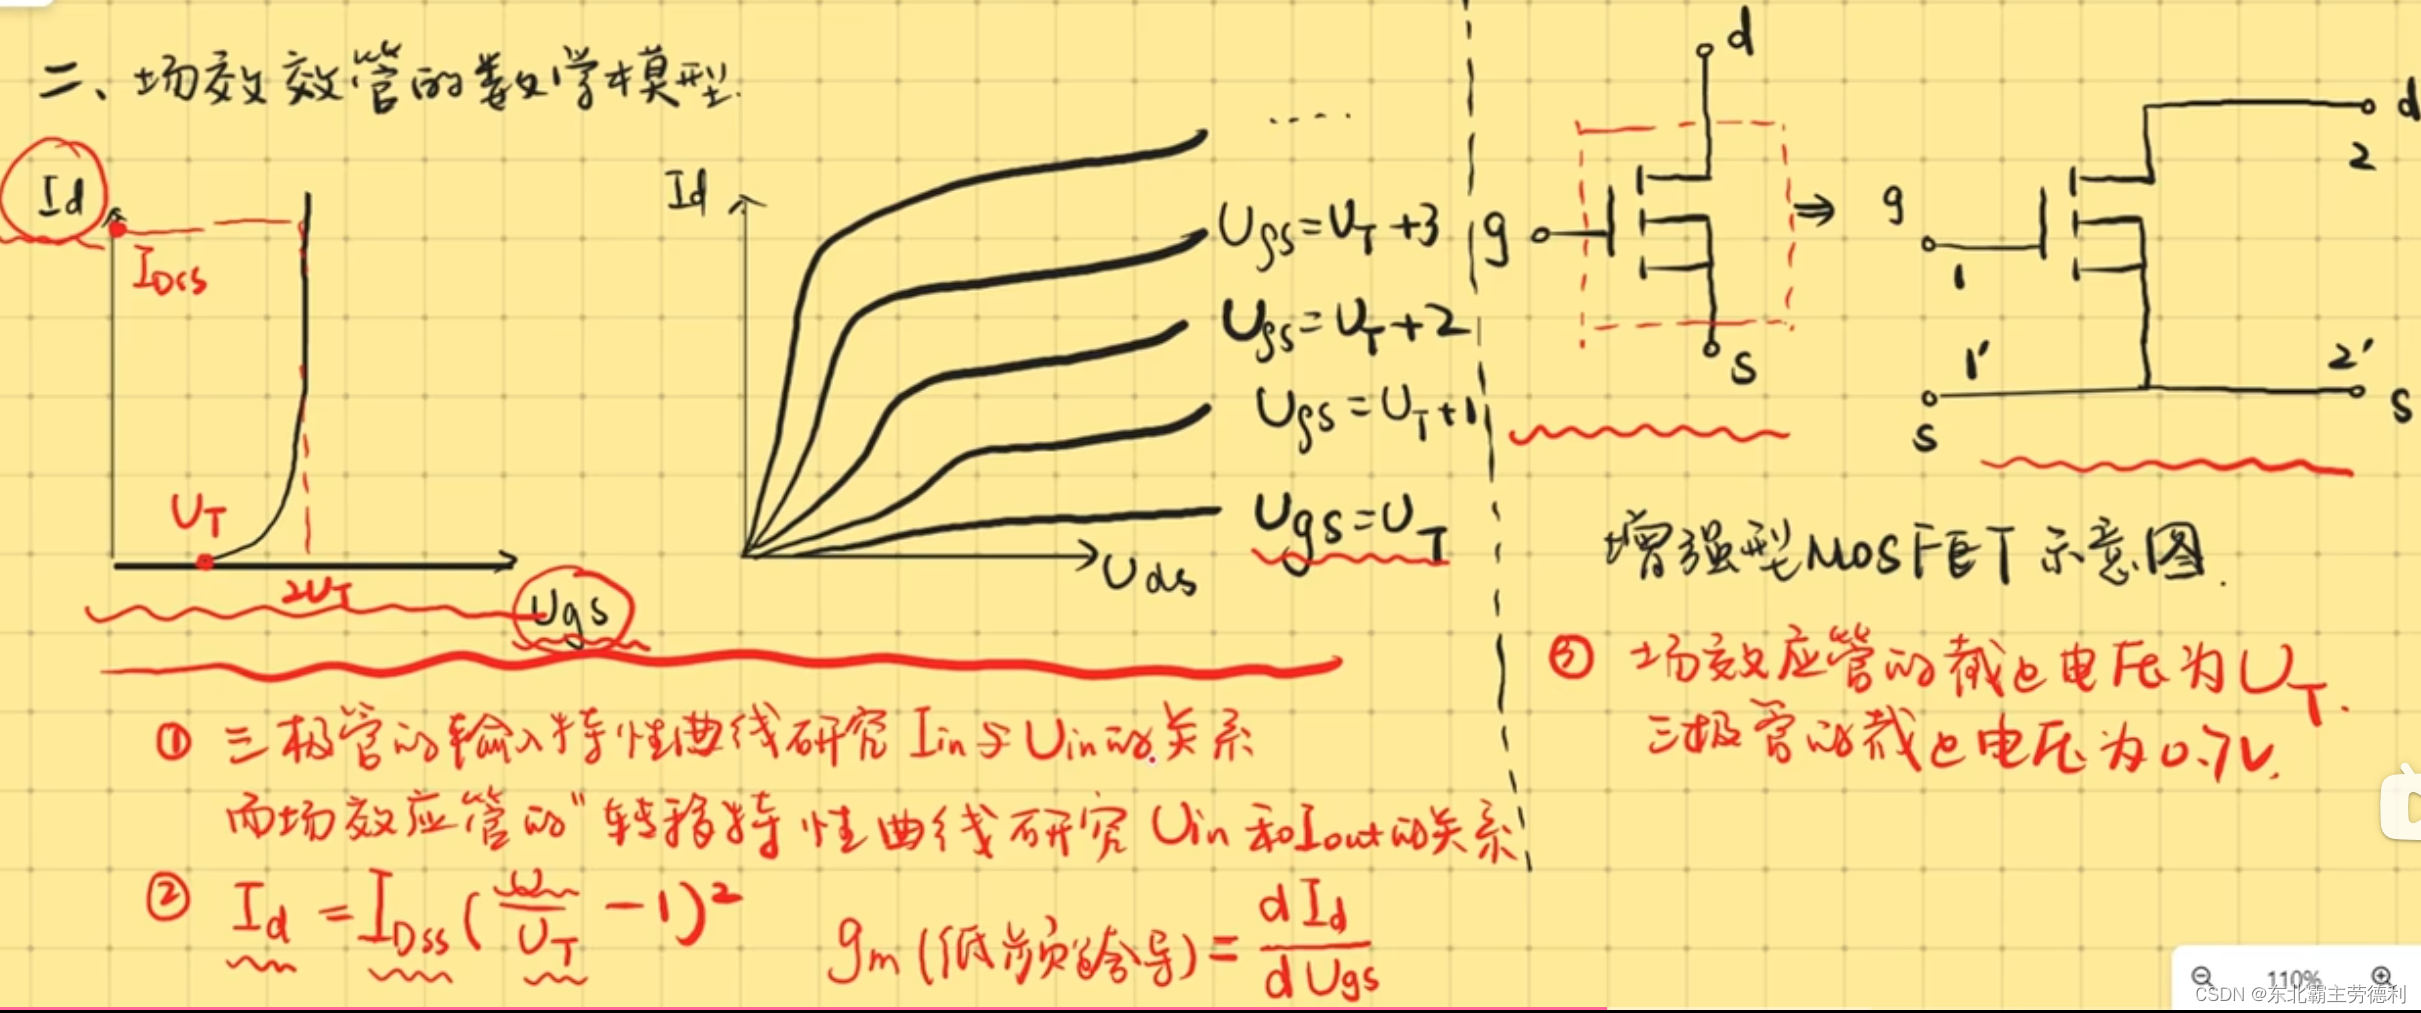 二、场效效管的数学模型.
Id
IDSS
UT
2UT
Ugs
Id
.....
Ugs=UT+3
Ugs=UT+2
Ugs=UT+1
Ugs=UT
Uds
d
g
s
⇒
g
1
1'
s
d
2
2'
s
增强型MOSFET示意图.
① 三极管的输入特性曲线研究Iin与Uin的关系
而场效应管的"转移特性曲线研究Uin和Iout的关系
② Id = IDSS(u/UT - 1)²
gm(低频跨导) = dId/dUgs
③ 场效应管的截止电压为UT.
三极管的截止电压为0.7V.
110%
CSDN @东北霸主劳德利